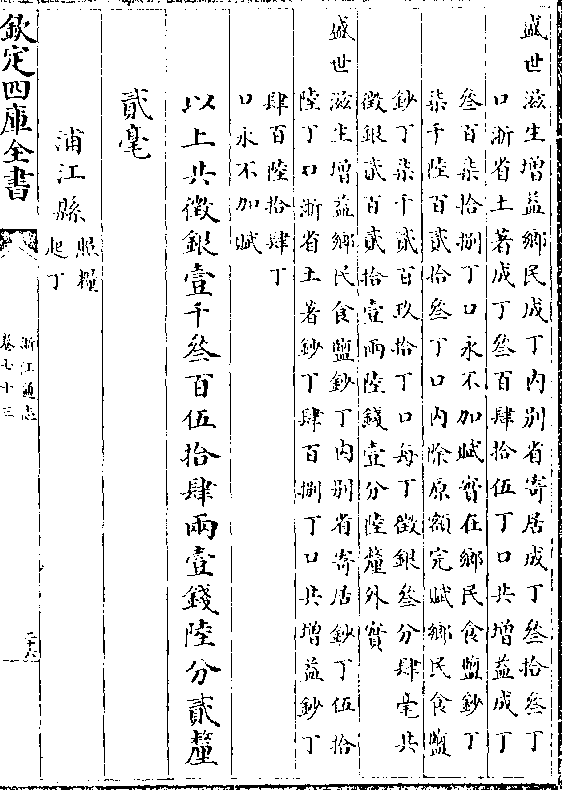 盛世滋生增益鄉民成丁内别省寄居成丁叁拾叁丁
口浙省土著成丁叁百肆拾伍丁口共增益成丁
叁百柒拾捌丁口永不加賦實在鄉民食鹽鈔丁
柒千陸百貳拾叁丁口内除原額完賦鄉民食鹽
鈔丁柒千貳百玖拾丁口每丁徴銀叁分肆毫共
徴銀貳百貳拾壹兩陸錢壹分陸釐外實
盛世滋生增益鄉民食鹽鈔丁内别省寄居鈔丁伍拾
陸丁口浙省土著鈔丁肆百捌丁口共增益鈔丁
肆百陸拾肆丁
口永不加賦
以上共徴銀壹千叁百伍拾肆兩壹錢陸分貳釐
貳毫
浦江縣照糧
起丁
欽定四庫全書
浙江通志
卷七十三
二十六